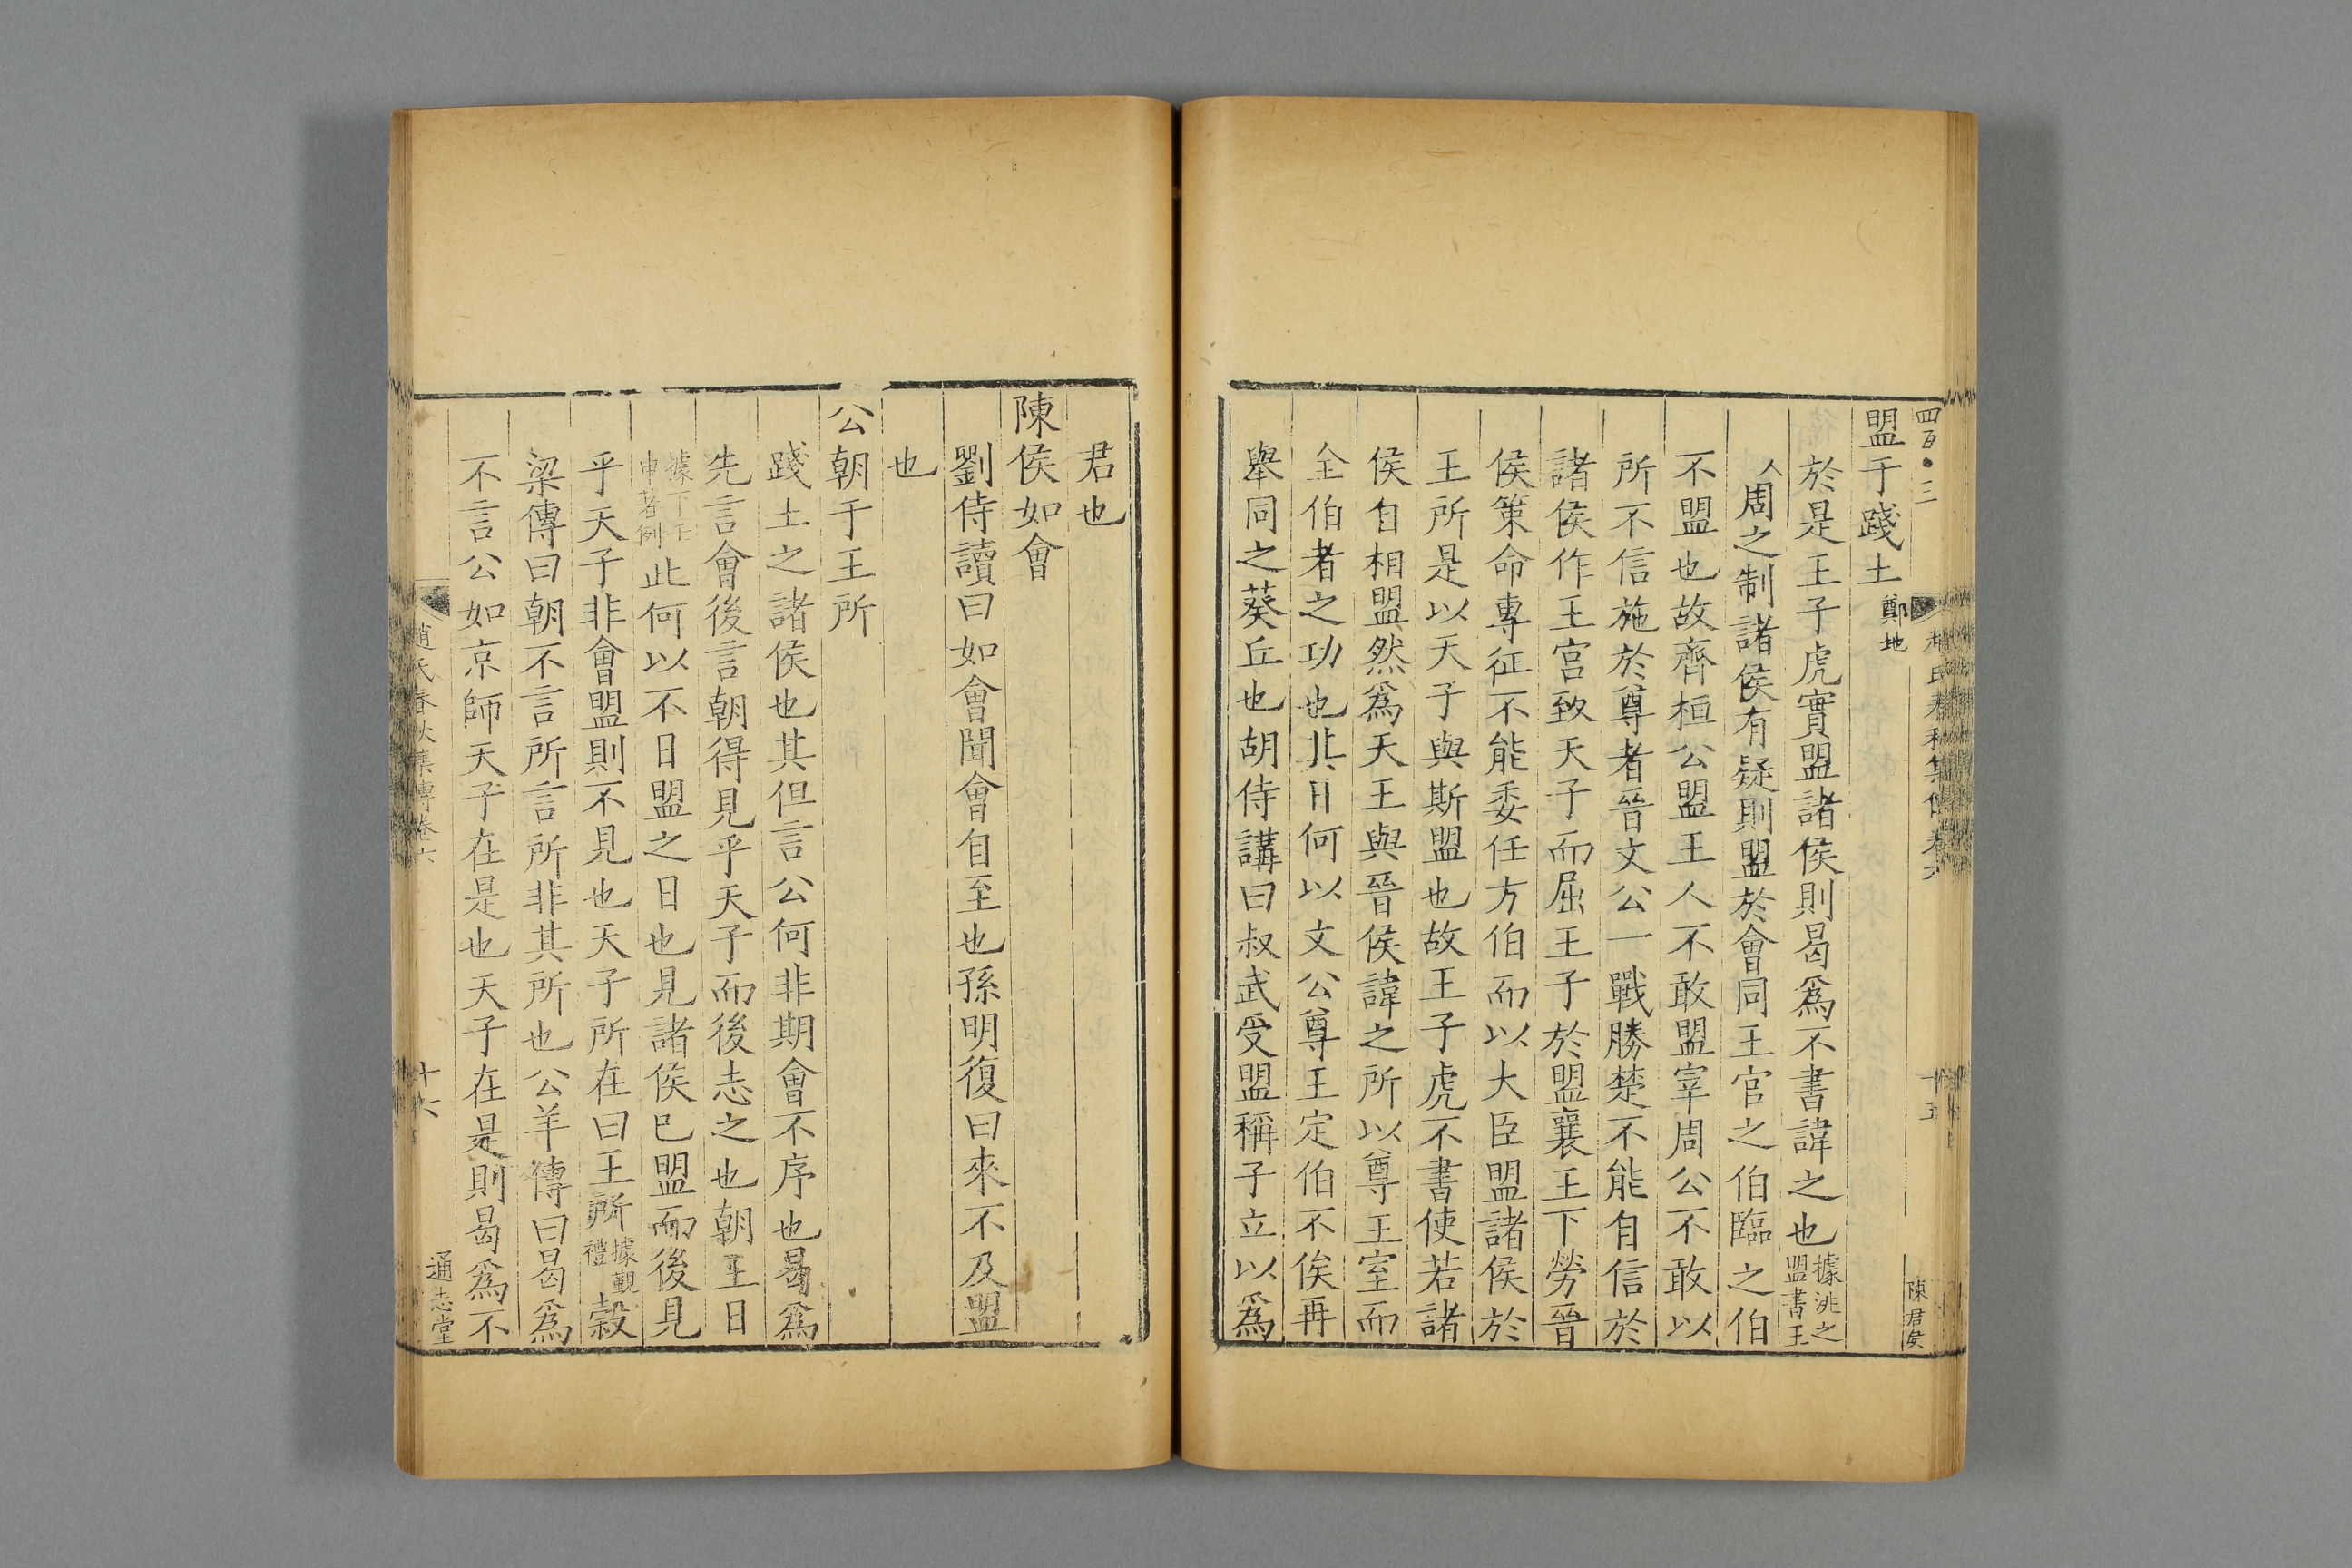 四百三
盟于踐土鄭地
於是王子虎實盟諸侯則曷爲不書諱之也據洮之盟書王
人周之制諸侯有疑則盟於會同王官之伯臨之伯
不盟也故齊桓公盟王人不敢盟宰周公不敢以
所不信施於尊者晉文公一戰勝楚不能自信於
諸侯作王宮致天子而屈王子於盟襄王下勞晉
侯策命專征不能委任方伯而以大臣盟諸侯於
王所是以天子與斯盟也故王子虎不書使若諸
侯自相盟然爲天王與晉侯諱之所以尊王室而
全伯者之功也其日何以文公尊王定伯不俟再
舉同之葵丘也胡侍講曰叔武受盟稱子立以爲
趙氏春秋集傳卷六
十五
陳君侯
君也
陳侯如會
劉侍讀曰如會聞會自至也孫明復曰來不及盟
也
公朝于王所
踐土之諸侯也其但言公何非期會不序也曷爲
先言會後言朝得見乎天子而後志之也朝王日
據下壬申著例此何以不日盟之日也見諸侯已盟而後見
乎天子非會盟則不見也天子所在曰王所據覲禮穀
梁傳曰朝不言所言所非其所也公羊傳曰曷爲
不言公如京師天子在是也天子在是則曷爲不
趙氏春秋集傳卷六
十六
通志堂